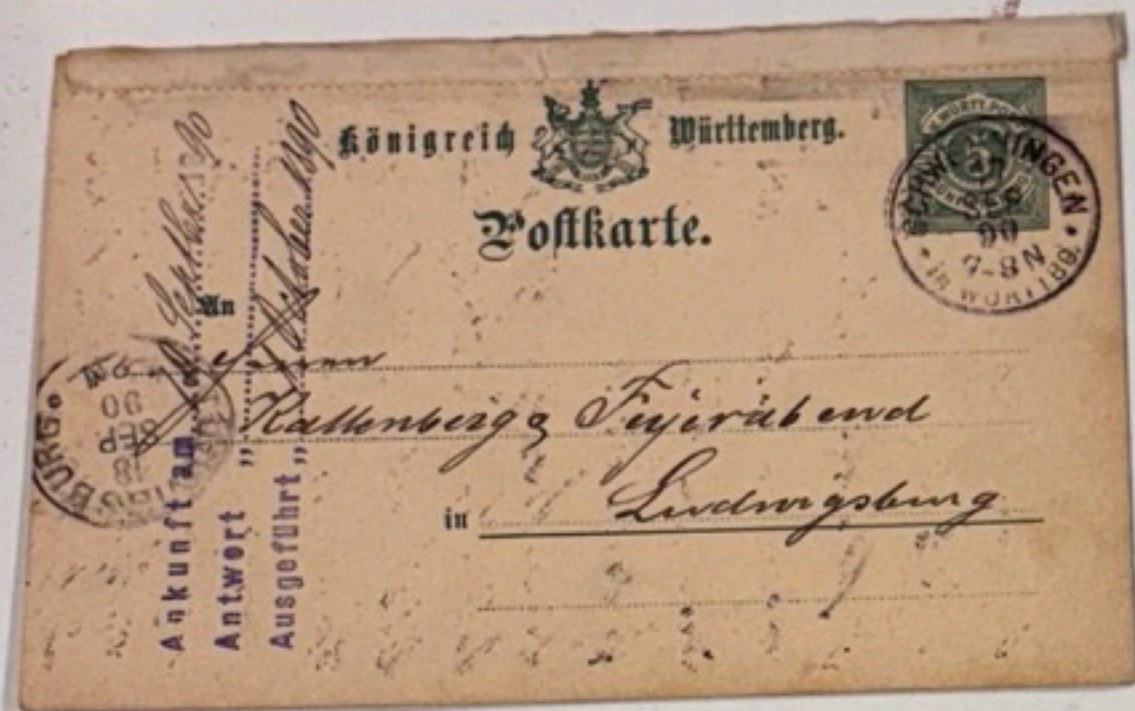 Königreich Württemberg.
Postkarte.
K. WÜRTT. POST
SCHWENNINGEN
17
SEP
90
7-8 N
IN WÜRTTBG.
An
Herren
Kallenberg & Feyerabend
in Ludwigsburg
BURG.
18
SEP
90
Ankunft am 18 September 1890
Antwort "
Ausgeführt " Oktober 1890